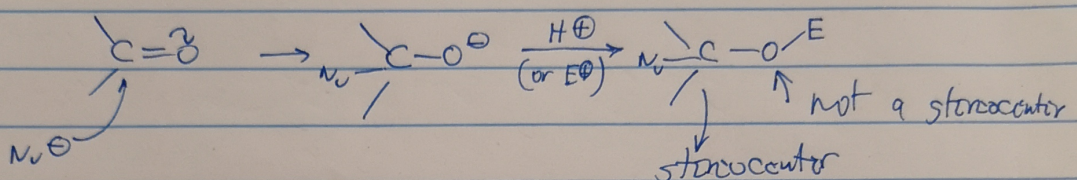 C=O → Nu-C-O⊖ H⊕ (or E⊕) → Nu-C-O-E
Nu⊖
not a stereocenter
stereocenter